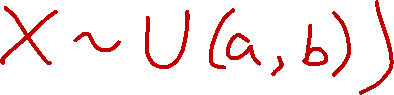 X ~ U(a,b))